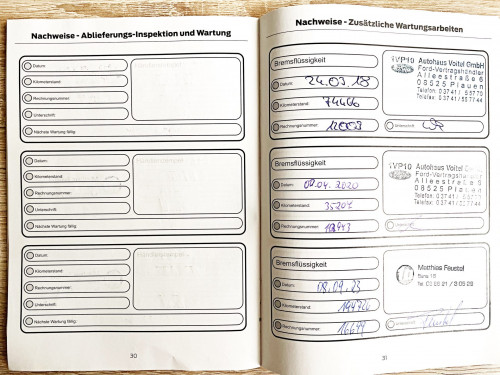 Nachweise - Ablieferungs-Inspektion und Wartung
Datum:
Kilometerstand:
Rechnungsnummer:
Unterschrift:
Nächste Wartung fällig:
Datum:
Kilometerstand:
Rechnungsnummer:
Unterschrift:
Nächste Wartung fällig:
Datum:
Kilometerstand:
Rechnungsnummer:
Unterschrift:
Nächste Wartung fällig:
30
Nachweise - Zusätzliche Wartungsarbeiten
Bremsflüssigkeit
Datum: 24.03.18
Kilometerstand: 74466
Rechnungsnummer: 12003
Autohaus Voitel GmbH
Ford-Vertragshändler
Alleestraße 6
08525 Plauen
Telefon 03741/55770
Telefax 03741/557744
Unterschrift:
Bremsflüssigkeit
Datum: 04.2020
Kilometerstand:
Rechnungsnummer:
Autohaus Voitel
Ford-Vertragshändler
Alleestraße 6
08525 Plauen
Bremsflüssigkeit
Datum: 08.09.23
Kilometerstand:
Rechnungsnummer:
Matthias Feustel
31